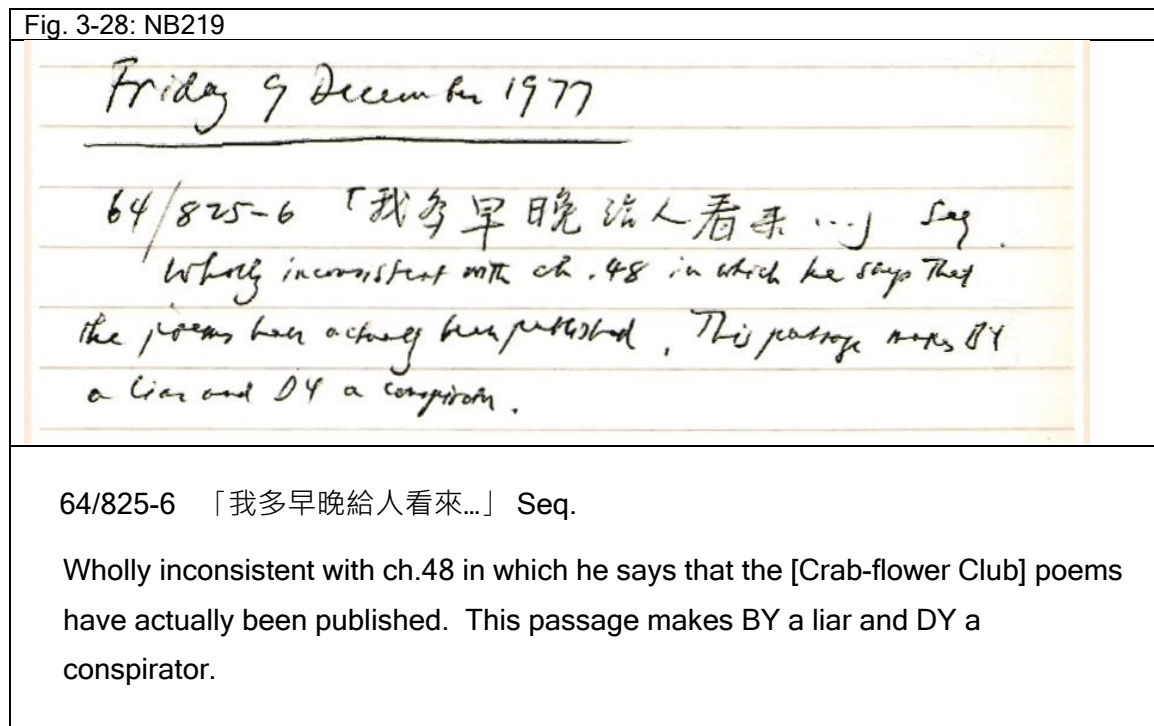 Fig. 3-28: NB219
Friday 9 December 1977
64/825-6 「我多早晚给人看来…」 Seq.
Wholly inconsistent with ch. 48 in which he says that
the poems have actually been published. This passage makes BY
a liar and DY a conspirator.
64/825-6 「我多早晚給人看來…」 Seq.
Wholly inconsistent with ch.48 in which he says that the [Crab-flower Club] poems
have actually been published. This passage makes BY a liar and DY a
conspirator.